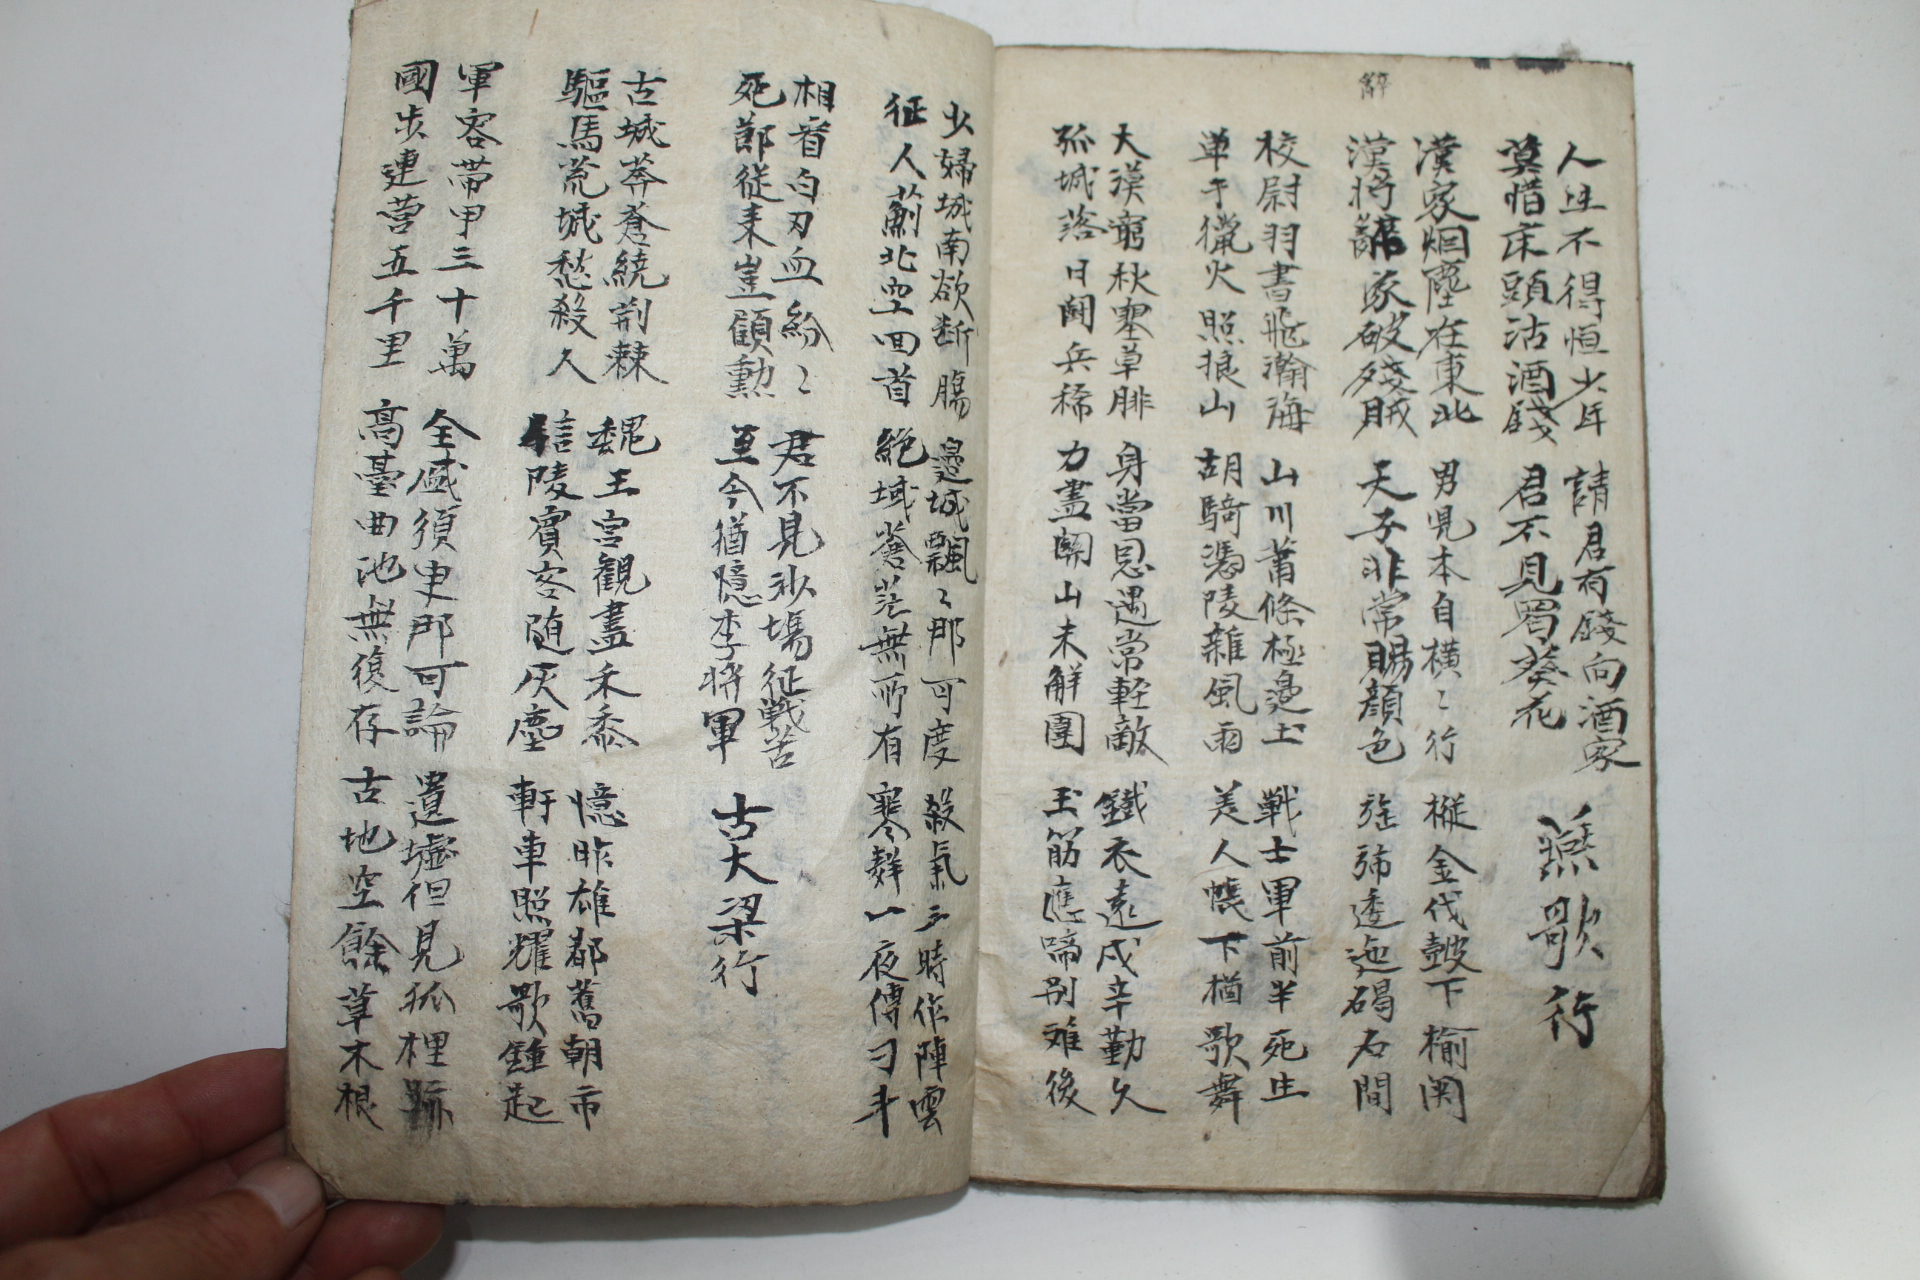 辭
人生不得恒少年
莫惜床頭沽酒錢
請君有錢向酒家
君不見蜀葵花
燕歌行
漢家烟塵在東北
漢將辭家破殘賊
男児本自橫〻行
天子非常賜顔色
摐金伐鼓下榆関
旌旆逶迤碣石間
校尉羽書飛瀚海
單于獵火照狼山
山川蕭條極邊土
胡騎憑陵雜風雨
戰士軍前半死生
美人帳下猶歌舞
大漠窮秋塞草腓
孤城落日鬪兵稀
身當恩遇常輕敵
力盡關山未解圍
鐵衣遠戍辛勤久
玉筋應啼別難後
少婦城南欲断膓
征人薊北空回首
邊城飄〻那可度
絶域蒼茫無所有
殺氣三時作陣雲
寒聲一夜傳刁斗
相看白刃血紛〻
死節従来豈顧勲
君不見沙塲征戰苦
至今猶憶李將軍
古大梁行
古城莽蒼繞荆棘
驅馬荒城愁殺人
魏王宮觀盡禾黍
信陵賓客随灰塵
憶昨雄都舊朝市
軒車照耀歌鍾起
軍容帶甲三十萬
國步連營五千里
全盛須臾那可論
高臺曲池無復存
遺墟但見狐狸跡
古地空餘草木根